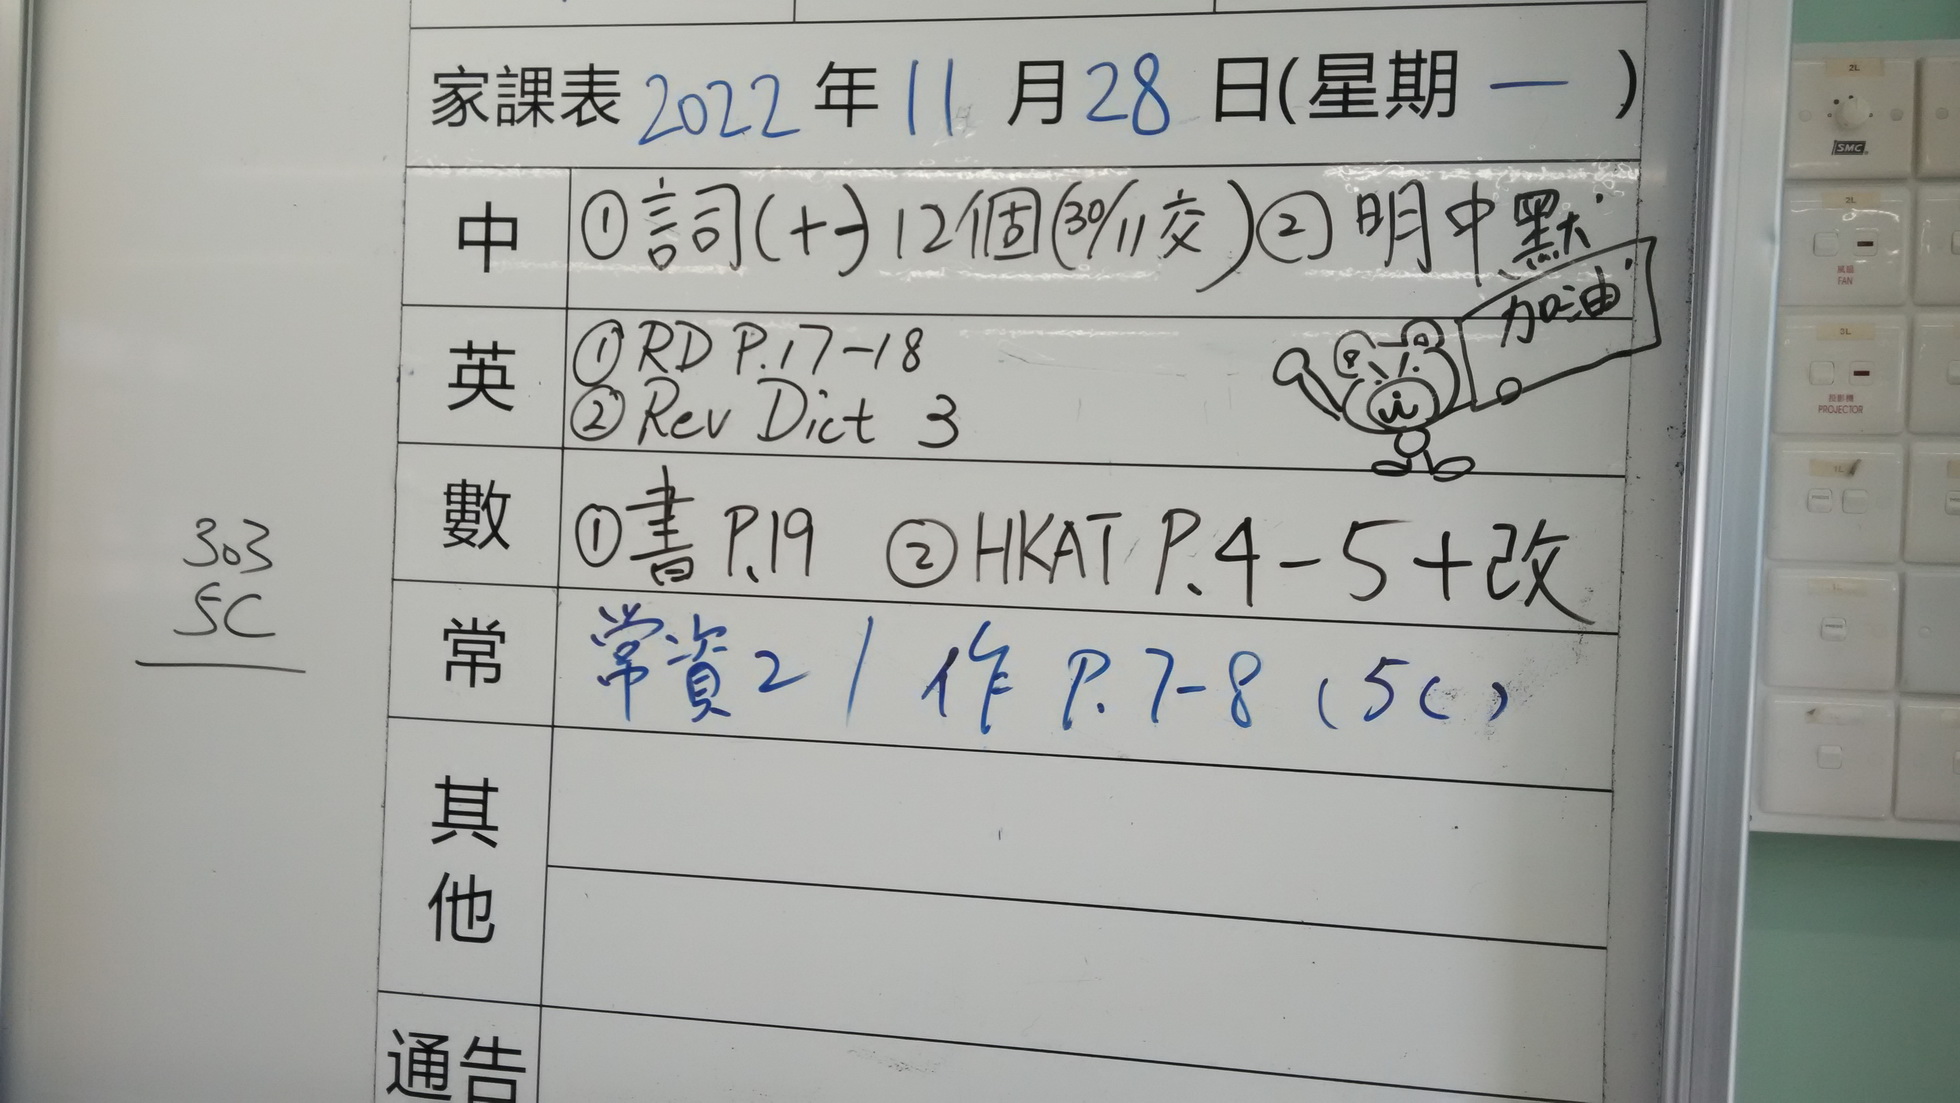 家課表 2022 年 11 月 28 日(星期 一 )
中 ①詞(十一)12個(30/11交)②明中默
加油
英 ①RD P.17-18
②Rev Dict 3
數 ①書 P.19 ②HKAT P.4-5+改
303
5C
常 常資2 / 作 P.7-8 (5C)
其他
通告
2L
SMC
2L
風扇
FAN
3L
投影機
PROJECTOR
1L